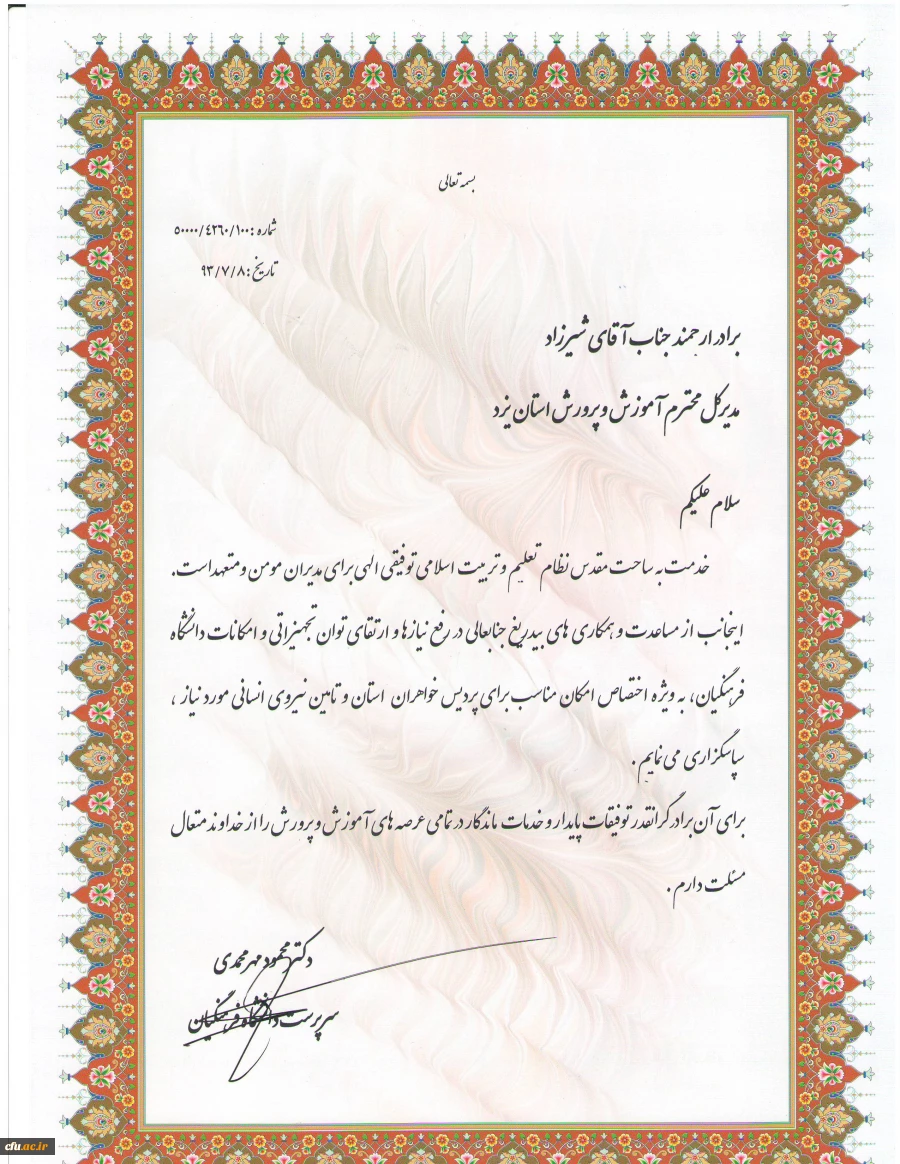 بسمه تعالی
شماره : ۵۰۰۰۰/۴۲۶۰/۱۰۰
تاریخ : ۹۳/۷/۸
برادر ارجمند جناب آقای شیرزاد
مدیرکل محترم آموزش و پرورش استان یزد
سلام علیکم
خدمت به ساحت مقدس نظام تعلیم و تربیت اسلامی توفیقی الهی برای مدیران مومن و متعهد است.
اینجانب از مساعدت و همکاری های بیدریغ جنابعالی در رفع نیازها و ارتقای توان تجهیزاتی و امکانات دانشگاه
فرهنگیان، به ویژه اختصاص امکان مناسب برای پردیس خواهران استان و تامین نیروی انسانی مورد نیاز ،
سپاسگزاری می نمایم .
برای آن برادر گرانقدر توفیقات پایدار و خدمات ماندگار در تمامی عرصه های آموزش و پرورش را از خداوند متعال
مسئلت دارم .
دکتر محمود مهرمحمدی
سرپرست دانشگاه فرهنگیان
cfu.ac.ir